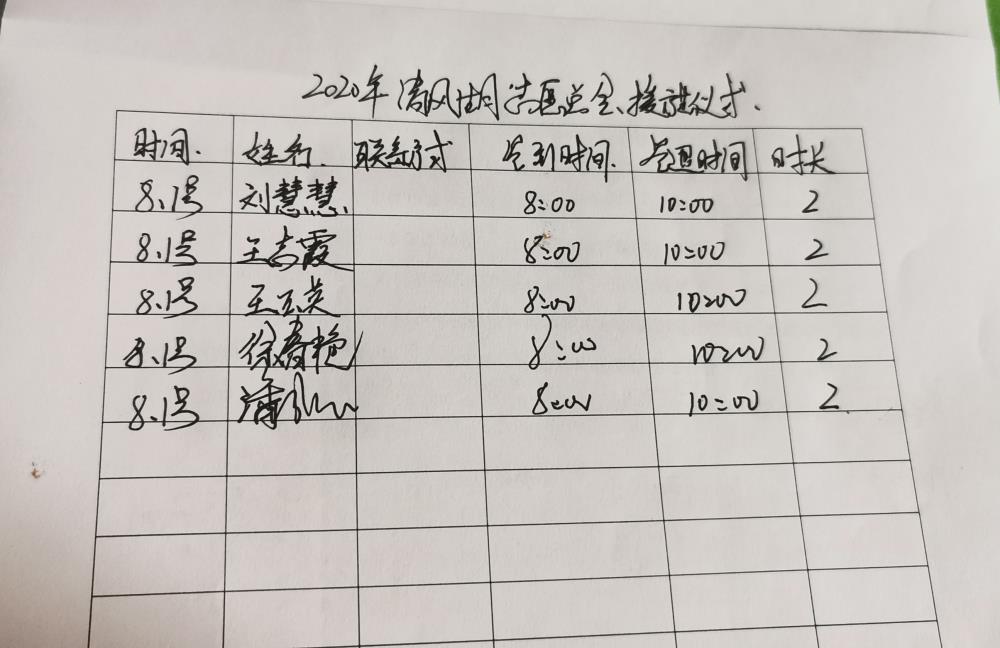 2020年清风
时间. 姓名. 联系方式 签到时间. 签退时间 时长
8.1号 刘慧慧 8:00 10:00 2
8.1号 王志霞 8:00 10:00 2
8.1号 王玉英 8:00 10:00 2
8.1号 徐春艳 8:00 10:00 2
8.1号 8:00 10:00 2